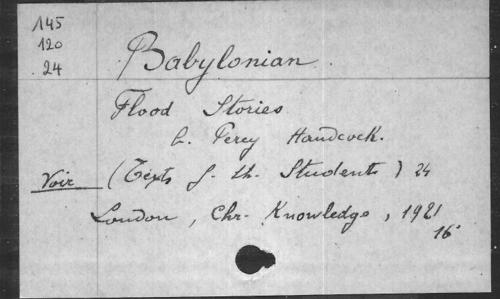 145
120
24
Babylonian
Flood Stories
b. Percy Handcock.
Voir (Texts f. th. Students) 24
London, Chr. Knowledge, 1921
16°